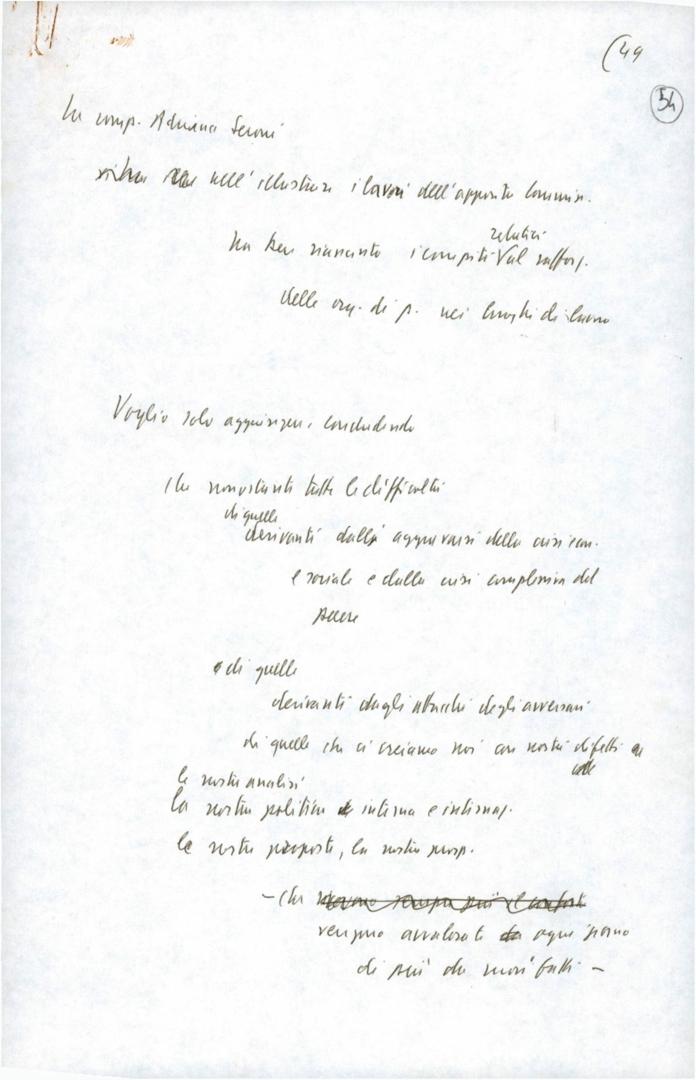 (49
54
La comp. Adriana Seroni
nell'illustrare i lavori dell'apposita Commis.
ha ben rimarcato i compiti relativi al rafforz.
delle org. di p. nei luoghi di lavoro
Voglio solo aggiungere, concludendo
che nonostante tutte le difficoltà
di quelle
derivanti dall'aggravarsi della crisi econ.
e sociale e dalla crisi complessiva del
Paese
di quelle
derivanti dagli attacchi degli avversari
di quelle che ci creiamo noi con nostri difetti
le nostre analisi
la nostra politica interna e internaz.
le nostre proposte, la nostra prosp.
- che
vengono avvalorate ogni giorno
di più da nuovi fatti -